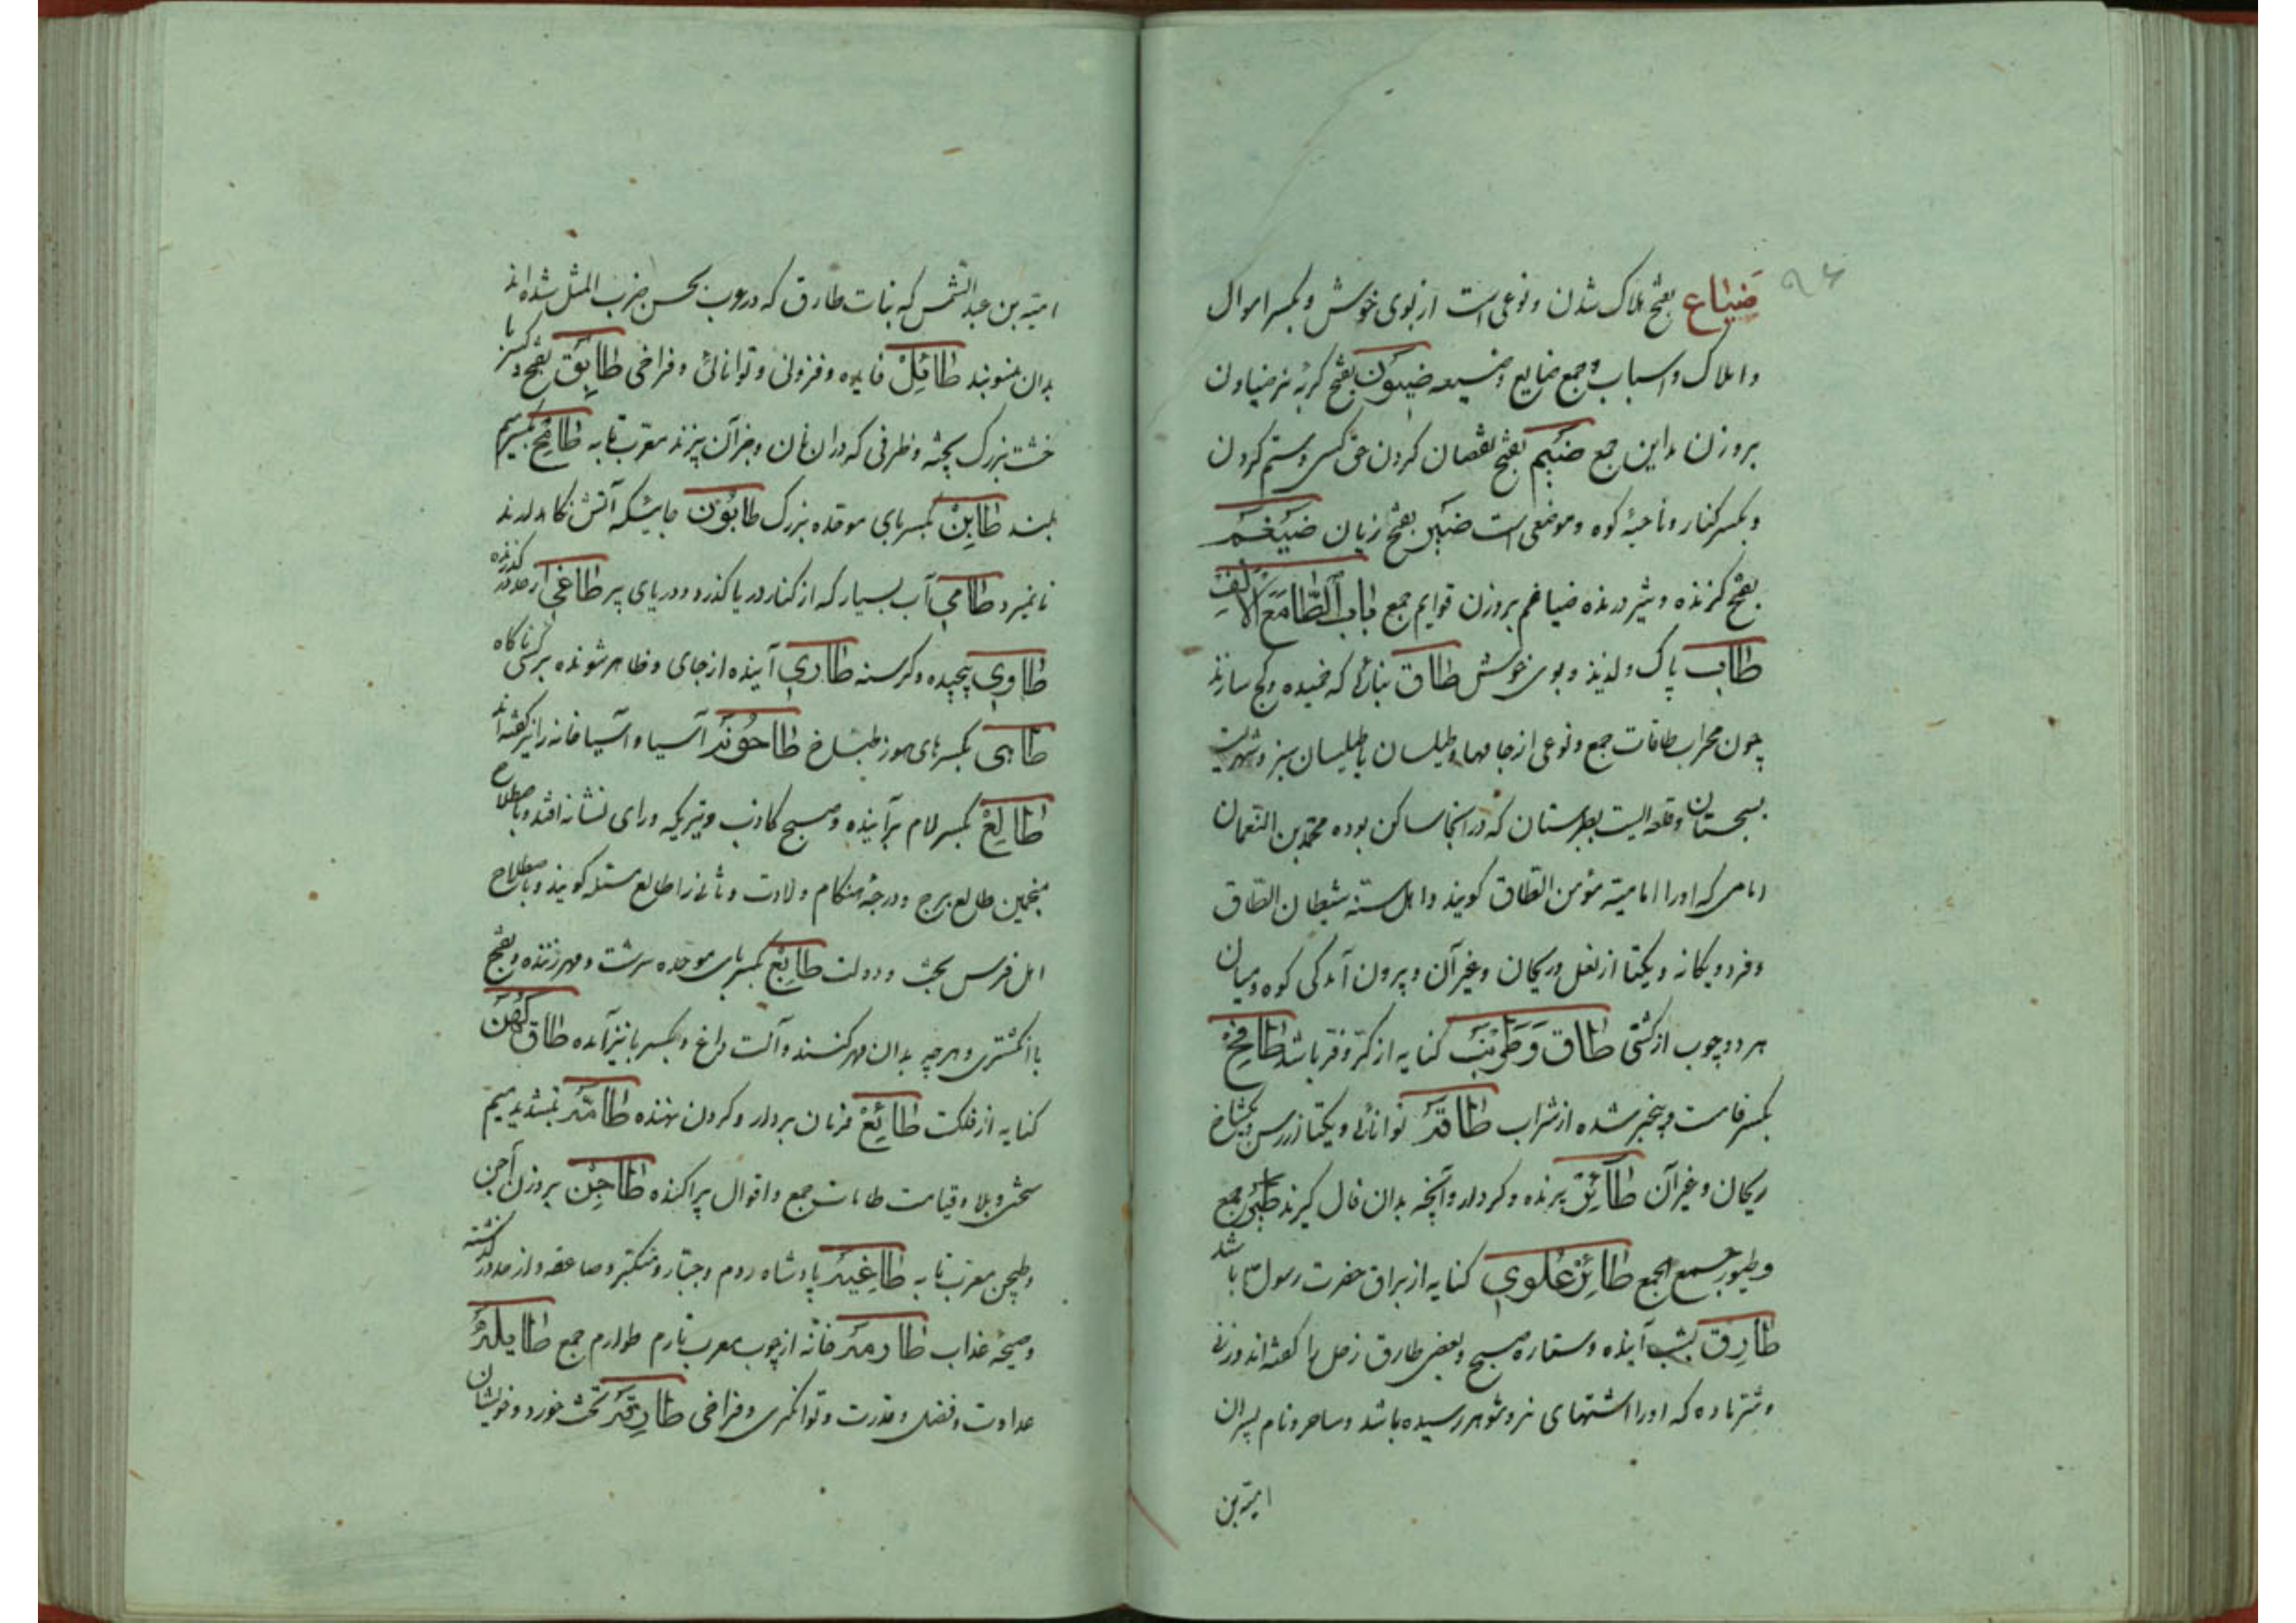 ۹۶
ضیاع بفتح هلاک شدن و نوعی است از بوی خوش و بکسر اموال
و املاک و اسباب و جمع ضایع و ضیعه ضیون بفتح گربه نر ضیاون
بروزن مداین جمع ضیم بفتح نقصان کردن حق کسی و ستم کردن
و بکسر کنار و ناحیهٔ کوه و موضعی است ضیر بفتح زیان ضیغم
بفتح گزنده و شیر درنده ضیاغم بروزن قوایم جمع باب الطا مع الالف
طاب پاک و لذیذ و بوی خوش طاق بنائی که خمیده و کج سازند
چون محراب طاقات جمع و نوعی از جامها و طیلسان یا طیلسان سبز و شهریست
بسجستان و قلعه ایست بطبرستان که در انجا ساکن بوده محمد بن النعمان
امامی که اورا امامیه مؤمن الطاق گویند و اهل سنه شیطان الطاق
و فرد و یکانه و یکتا از نعل و ریحان و غیر آن و بیرون آمدگی کوه و میان
هر دو چوب از کشتی طاق و طرنب کنایه از کر و فر باشد طافح
بکسر فا مست و بیخبر شده از شراب طاقة توانائی و یکتا از رسن و یکشاخ
ریحان و غیر آن طائر پرنده و کردار و آنچه بدان فال گیرند طیر جمع
و طیور جمع الجمع طائر علوی کنایه از براق حضرت رسول ص باشد
طارق بشب آینده و ستاره صبح و بعضی طارق زحل را گفته اند و زنی
و شتر ماده که اورا اشتهای نر و شوهر رسیده باشد و ساحر و نام پسران
امیة بن
امیة بن عبد الشمس که بنات طارق که در عرب بحسن ضرب المثل شده اند
بدان منسوبند طائل فایده و فزونی و توانائی و فراخی طابق بفتح و کسر با
خشت بزرگ پخته و ظرفی که دران نان و جز آن پزند معرب تابه طامح بکسر میم
بلند طابن بکسر بای موحده بزرگ طابون جائیکه آتش نگاهدارند
تا نمیرد طامی آب بسیار که از کنار دریا گذرد و دریای پر طاغی از حد در گذرنده
طاوی پیچیده و گرسنه طاری آینده از جای و ظاهر شونده بر کسی ناگاه
طاهی بکسر های هوز طباخ طاحونة آسیا و آسیا خانه را نیز گفته اند
طالع بکسر لام برآینده و صبح کاذب و تیریکه ورای نشانه افتد و باصطلاح
منجمین طالع برج و درجهٔ هنگام ولادت و ثانی را طالع مسئله گویند و باصطلاح
اهل فرس بخت و دولت طابع بکسر بای موحده سرشت و مهر زننده و بفتح
با انگشتری و هرچه بدان مهر کنند و آلت داغ و بکسر با نیز آمده طاق کهن
کنایه از فلکت طائع فرمان بردار و گردن نهنده طامة بتشدید میم
سختی و بلا و قیامت طامات جمع و اقوال پراکنده طاجن بروزن آجن
و طیجن معرب تابه طاغیة پادشاه روم و جبار و متکبر و صاعقه و از حد در گذشته
و صیحه عذاب طارمة خانهٔ از چوب معرب تارم طوارم جمع طایلة
عداوت و فضل و قدرت و توانگری و فراخی طارقة تخت خورد و خویشان